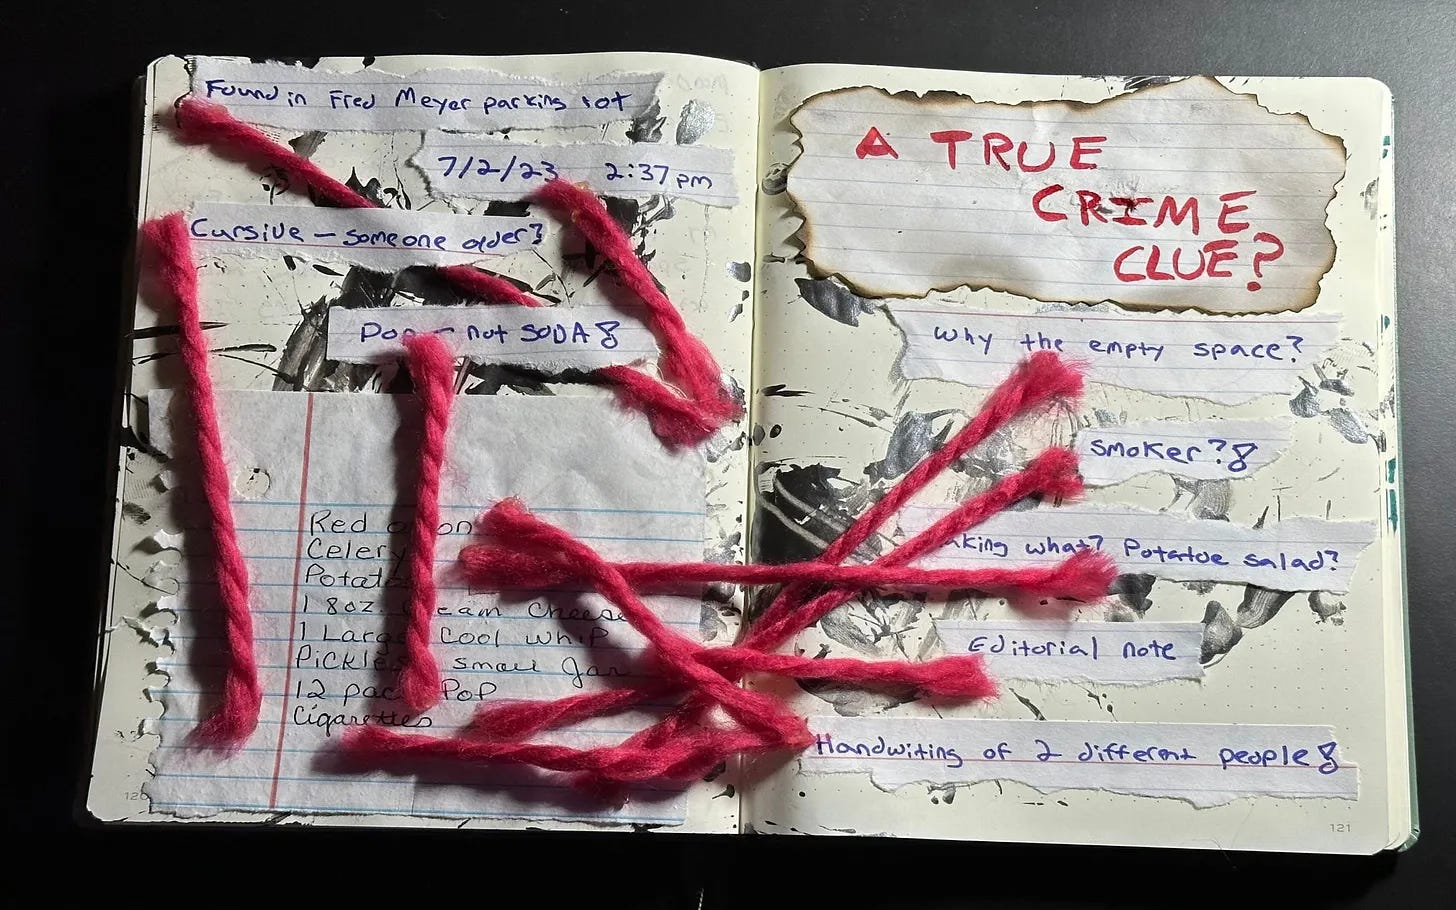 Found in Fred Meyer parking lot
7/2/23 2:37pm
Cursive — someone older?
— not SODA
Red
Celery
1 8oz. Cheese
1 Large Cool Whip
small Jar
12 Pop
Cigarettes
120
A TRUE
CRIME
CLUE?
Why the empty space?
Smoker?
what? Potatoe salad?
Editorial note
Handwiting of 2 different people
121